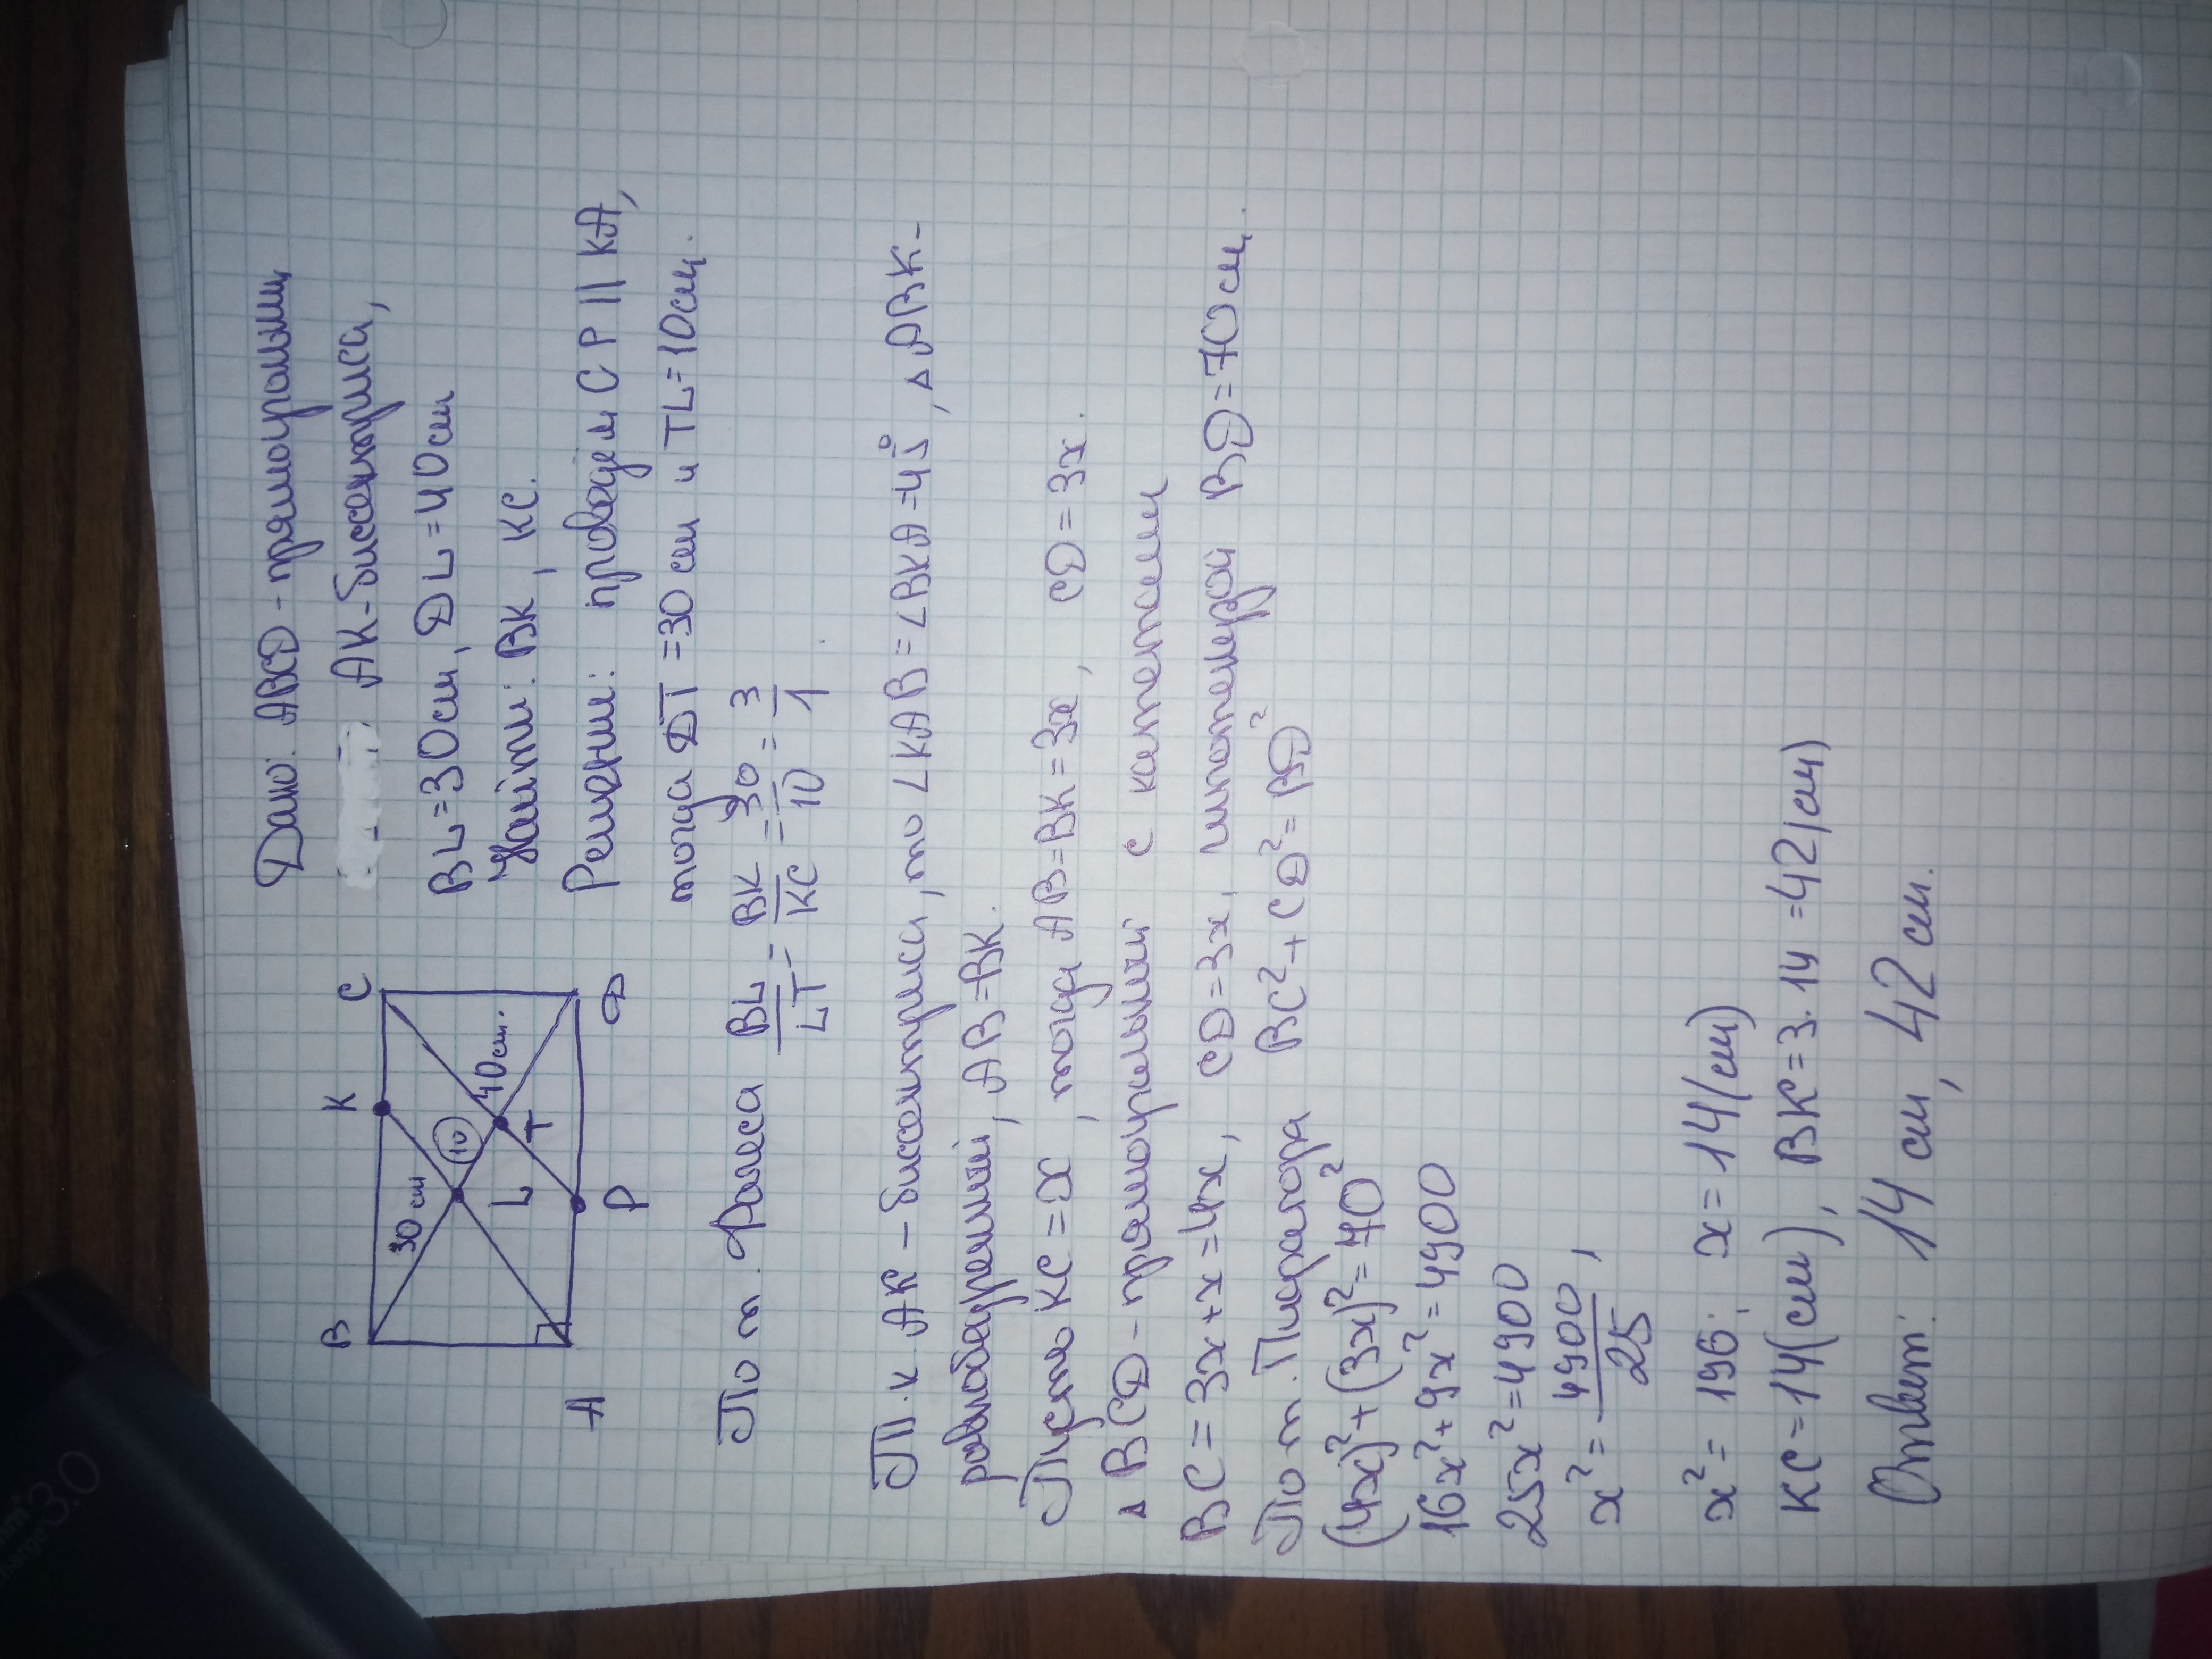 B K C
30 см
10
40 см.
L T
A P D
Дано: ABCD - прямоугольн
AK - биссектриса,
BL = 30 см, DL = 40 см
Найти: BK, KC.
Решение: проведём CP || KA,
тогда DT = 30 см и TL = 10 см.
По т. Фалеса BL/LT = BK/KC = 30/10 = 3/1.
Т.к AK - биссектриса, то ∠KAB = ∠BKA = 45°, △ABK -
равнобедренный, AB = BK.
Пусть KC = x, тогда AB = BK = 3x, CD = 3x.
△BCD - прямоугольный с катетами
BC = 3x + x = 4x, CD = 3x, гипотенузой BD = 70 см.
По т. Пифагора BC² + CD² = BD²
(4x)² + (3x)² = 70²
16x² + 9x² = 4900
25x² = 4900
x² = 4900/25,
x² = 196; x = 14 (см)
KC = 14 (см), BK = 3 · 14 = 42 (см)
Ответ: 14 см, 42 см.
3.0